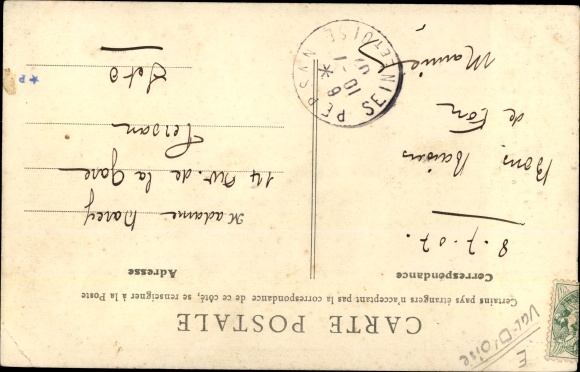 CARTE POSTALE
Certains pays étrangers n'acceptant pas la correspondance de ce côté, se renseigner à la Poste
Correspondance
Adresse
8-7-07.
Bons Baisers
de
Madame Darcy
14 Av. de la Gare
Persan
S et O
PERSAN
SEINE ET OISE
Val-D'Oise
E